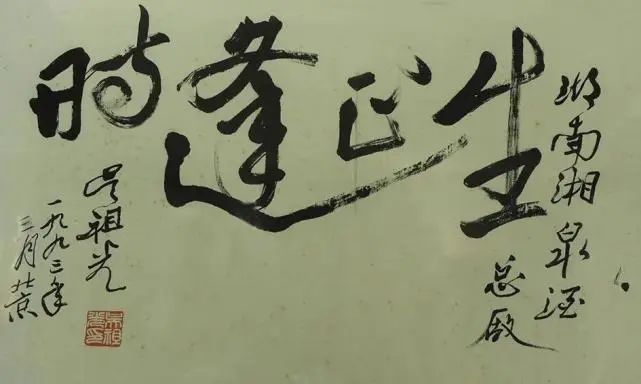 湖南湘泉酒
总厰
生正逢时
吴祖光
一九九三年
三月北京
吳祖
光印